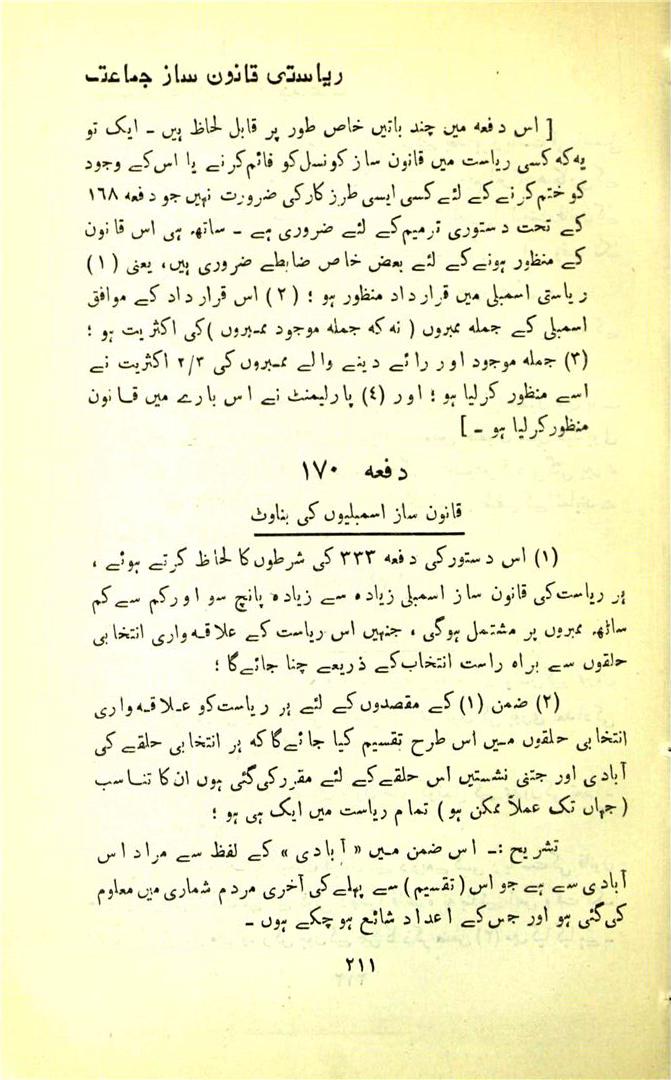 ریاستی قانون ساز جماعت
[ اس دفعہ میں چند باتیں خاص طور پر قابل لحاظ ہیں ۔ ایک تو
یہ کہ کسی ریاست میں قانون ساز کونسل کو قائم کرنے یا اس کے وجود
کو ختم کرنے کے لئے کسی ایسی طرز کار کی ضرورت نہیں جو دفعہ ۱۶۸
کے تحت دستوری ترمیم کے لئے ضروری ہے ۔ ساتھ ہی اس قانون
کے منظور ہونے کے لئے بعض خاص ضابطے ضروری ہیں، یعنی (۱)
ریاستی اسمبلی میں قرارداد منظور ہو ؛ (۲) اس قرارداد کے موافق
اسمبلی کے جملہ ممبروں ( نہ کہ جملہ موجود ممبروں ) کی اکثریت ہو ؛
(۳) جملہ موجود اور رائے دینے والے ممبروں کی ۲/۳ اکثریت نے
اسے منظور کرلیا ہو ؛ اور (٤) پارلیمنٹ نے اس بارے میں قانون
منظور کرلیا ہو ۔ ]
دفعہ ۱۷۰
قانون ساز اسمبلیوں کی بناوٹ
(۱) اس دستور کی دفعہ ۳۳۳ کی شرطوں کا لحاظ کرتے ہوئے ،
ہر ریاست کی قانون ساز اسمبلی زیادہ سے زیادہ پانچ سو اور کم سے کم
ساٹھ ممبروں پر مشتمل ہوگی ، جنہیں اس ریاست کے علاقہ واری انتخابی
حلقوں سے براہ راست انتخاب کے ذریعے چنا جائے گا ؛
(۲) ضمن (۱) کے مقصدوں کے لئے ہر ریاست کو علاقہ واری
انتخابی حلقوں میں اس طرح تقسیم کیا جائے گا کہ ہر انتخابی حلقے کی
آبادی اور جتنی نشستیں اس حلقے کے لئے مقرر کی گئی ہوں ان کا تناسب
( جہاں تک عملاً ممکن ہو ) تمام ریاست میں ایک ہی ہو ؛
تشریح :۔ اس ضمن میں « آبادی » کے لفظ سے مراد اس
آبادی سے ہے جو اس ( تقسیم ) سے پہلے کی آخری مردم شماری میں معلوم
کی گئی ہو اور جس کے اعداد شائع ہوچکے ہوں ۔
۲۱۱